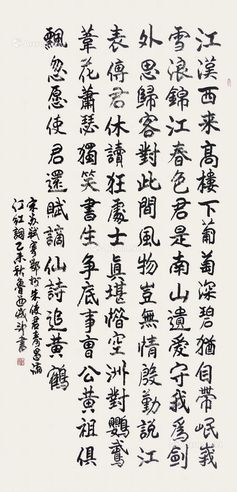 江漢西來高樓下葡萄深碧猶自帶岷峨
雪浪錦江春色君是南山遺愛守我為劍
外思歸客對此間風物豈無情殷勤說江
表傳君休讀狂處士真堪惜空洲對鸚鵡
葦花蕭瑟獨笑書生爭底事曹公黃祖俱
飄忽愿使君還賦謫仙詩追黃鶴
宋蘇軾寄鄂州朱使君壽昌滿
江紅詞乙未秋魯西成斗書